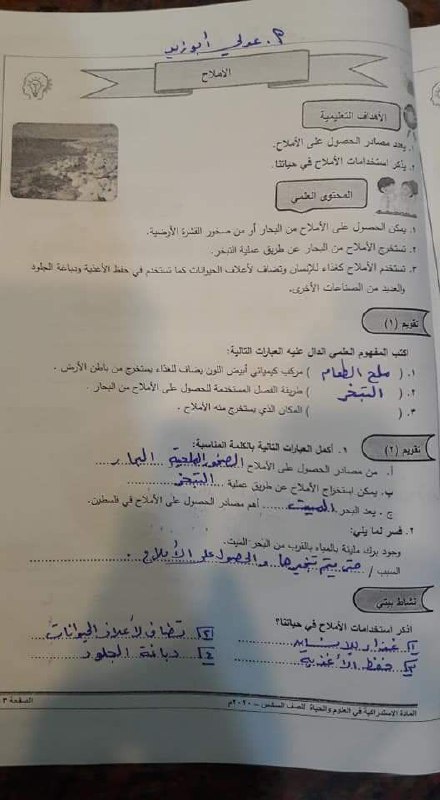 م. عدلي أبوزيد
الأملاح
الأهداف التعليمية
١. يعدد مصادر الحصول على الأملاح.
٢. يذكر استخدامات الأملاح في حياتنا.
المحتوى العلمي
١. يمكن الحصول على الأملاح من البحار أو من صخور القشرة الأرضية.
٢. تستخرج الأملاح من البحار عن طريق عملية التبخر.
٣. تستخدم الأملاح كغذاء للإنسان وتضاف لأعلاف الحيوانات كما تستخدم في حفظ الأغذية ودباغة الجلود
والعديد من الصناعات الأخرى.
تقويم (١)
اكتب المفهوم العلمي الدال عليه العبارات التالية:
١. ( ملح الطعام ) مركب كيميائي أبيض اللون يضاف للغذاء يستخرج من باطن الأرض .
٢. ( التبخر ) طريقة الفصل المستخدمة للحصول على الأملاح من البحار .
٣. ( ) المكان الذي يستخرج منه الأملاح .
تقويم (٢)
١. أكمل العبارات التالية بالكلمة المناسبة:
أ. من مصادر الحصول على الأملاح الصخور الملحية البحار
ب. يمكن استخراج الأملاح عن طريق عملية التبخر
ج. يعد البحر الميت أهم مصادر الحصول على الأملاح في فلسطين.
٢. فسر لما يلي:
وجود برك مليئة بالمياه بالقرب من البحر الميت.
السبب / حتى يتم تبخيرها والحصول على الأملاح .
نشاط بيتي
اذكر استخدامات الأملاح في حياتنا؟
١ غذاء للإنسان ٢ تضاف لأعلاف الحيوانات
٣ حفظ الأغذية ٤ دباغة الجلود
المادة الاستدراكية في العلوم والحياة للصف السادس – ٢٠٢٠م الصفحة ٣